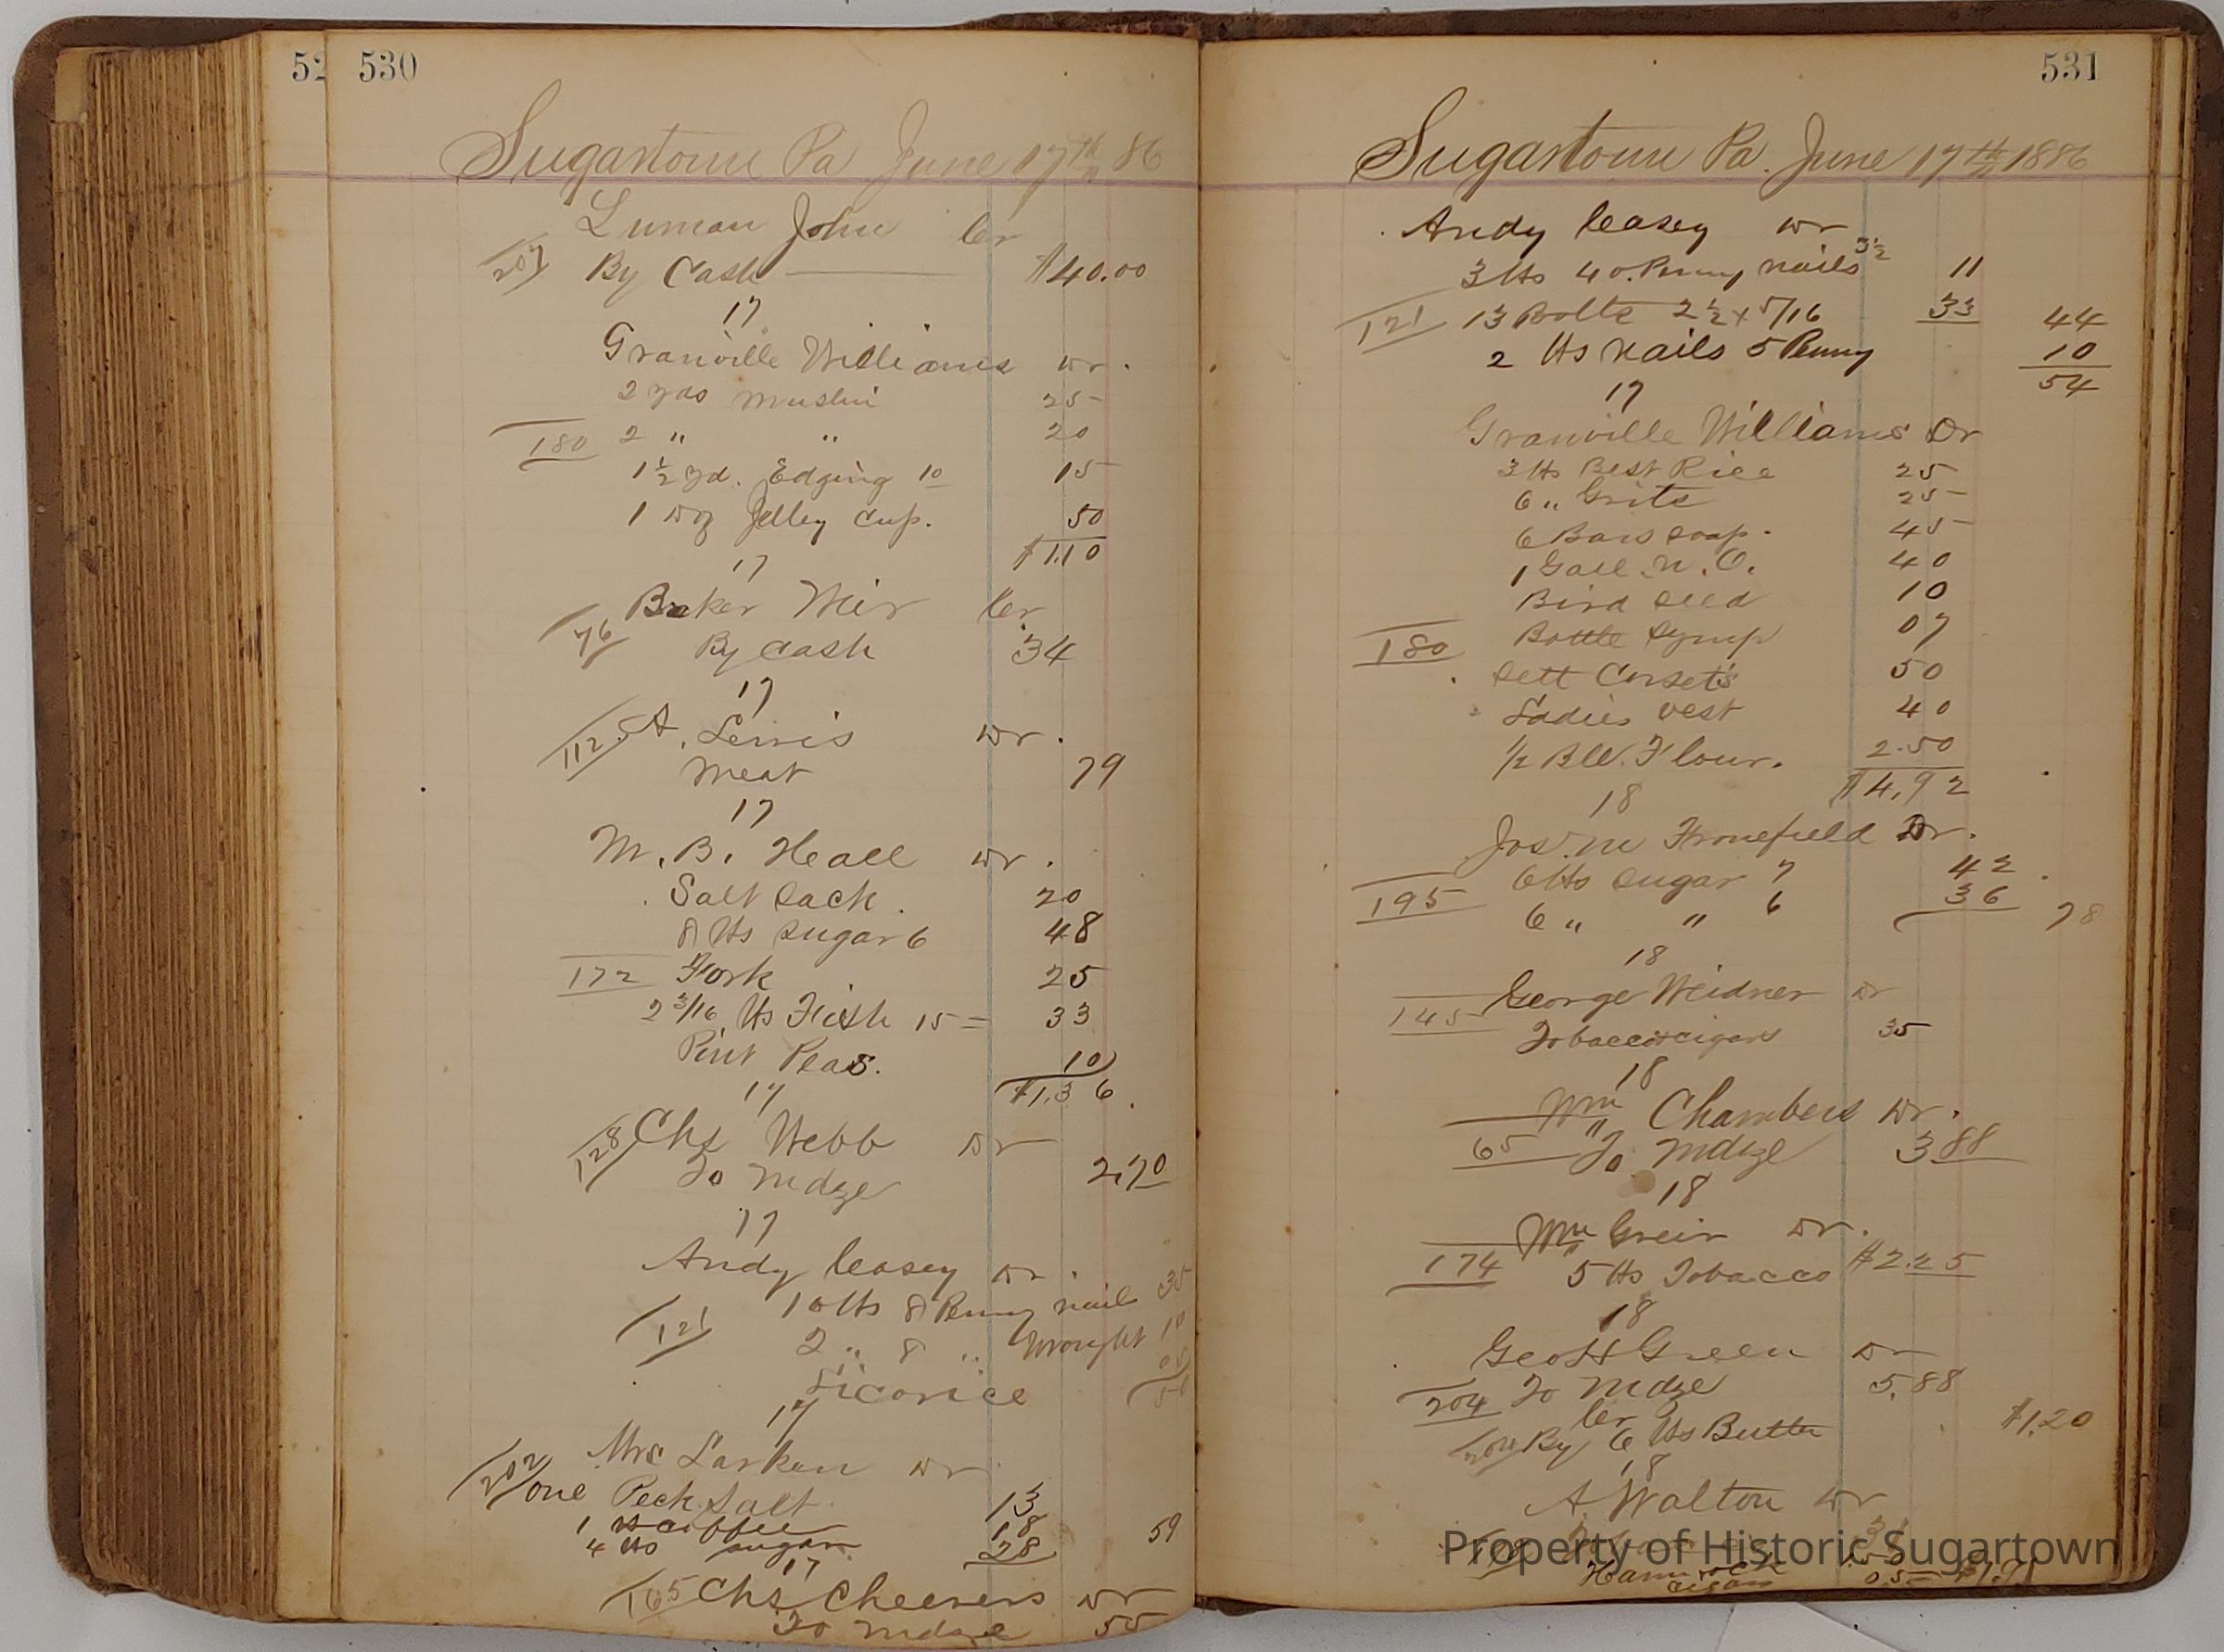 52 530
Sugartown Pa June 17th 86
Luman John Cr
207 By Cash $40.00
17
Granville Williams Dr.
2 yds Muslin 25
180 2 " " 20
1½ yd. Edging 10 15
1 Doz Jelley Cup. 50
$1.10
17
Baker Cr
76 By Cash 34
17
112 A. Lewis Dr.
Meat 79
17
M. B. Heall Dr.
Salt Sack. 20
8 lbs Sugar 6 48
172 Fork 25
2 3/16 lbs Fish 15 = 33
Pint Peas. 10
$1.36
17
128 Chs Webb Dr
To Mdze 2.70
17
Andy Ceasey Dr.
10 lbs 8 Penny nails 35
121 2 " 8 " Wrought 10
Licorice
17
202 Mrs Larken Dr
One Peck Salt 13
1 lb Coffee 18
4 lbs Sugar 28 59
17
165 Chs Cheevers Dr
To Mdze 55
531
Sugartown Pa. June 17th 1886
Andy Ceasey Dr
3 lbs 40. Penny nails 3½ 11
121 13 Bolts 2½ x 5/16 33 44
2 lbs nails 5 Penny 10
54
17
Granville Williams Dr
3 lbs Best Rice 25
6 " Grits 25
6 Bars Soap. 45
1 Gall. N. O. 40
Bird Seed 10
180 Bottle Syrup 07
Sett Corsets 50
Ladies Vest 40
1/2 Bll. Flour. 2.50
$4.92
18
Jos. M Fronefield Dr.
6 lbs Sugar 7 42
195 6 " " 6 36 78
18
George Weidner Dr
145 Tobacco & cigars 35
18
Wm Chambers Dr.
65 To Mdze 3 88
18
Wm Greir Dr.
174 5 lbs Tobacco $2.25
18
Geo H Green Dr
204 To Mdze 5.88
Cr
204 By 6 lbs Butter $1.20
18
A Walton Dr
Hammock
cigars 05
Property of Historic Sugartown